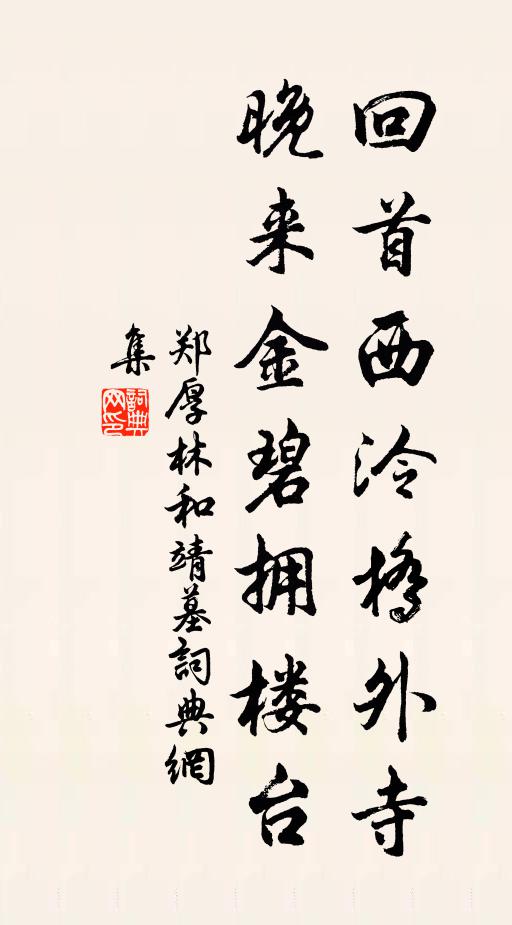 回首西泠橋外寺
晚来金碧拥楼台
郑厚林和靖墓詞典網
集
詞典
网印